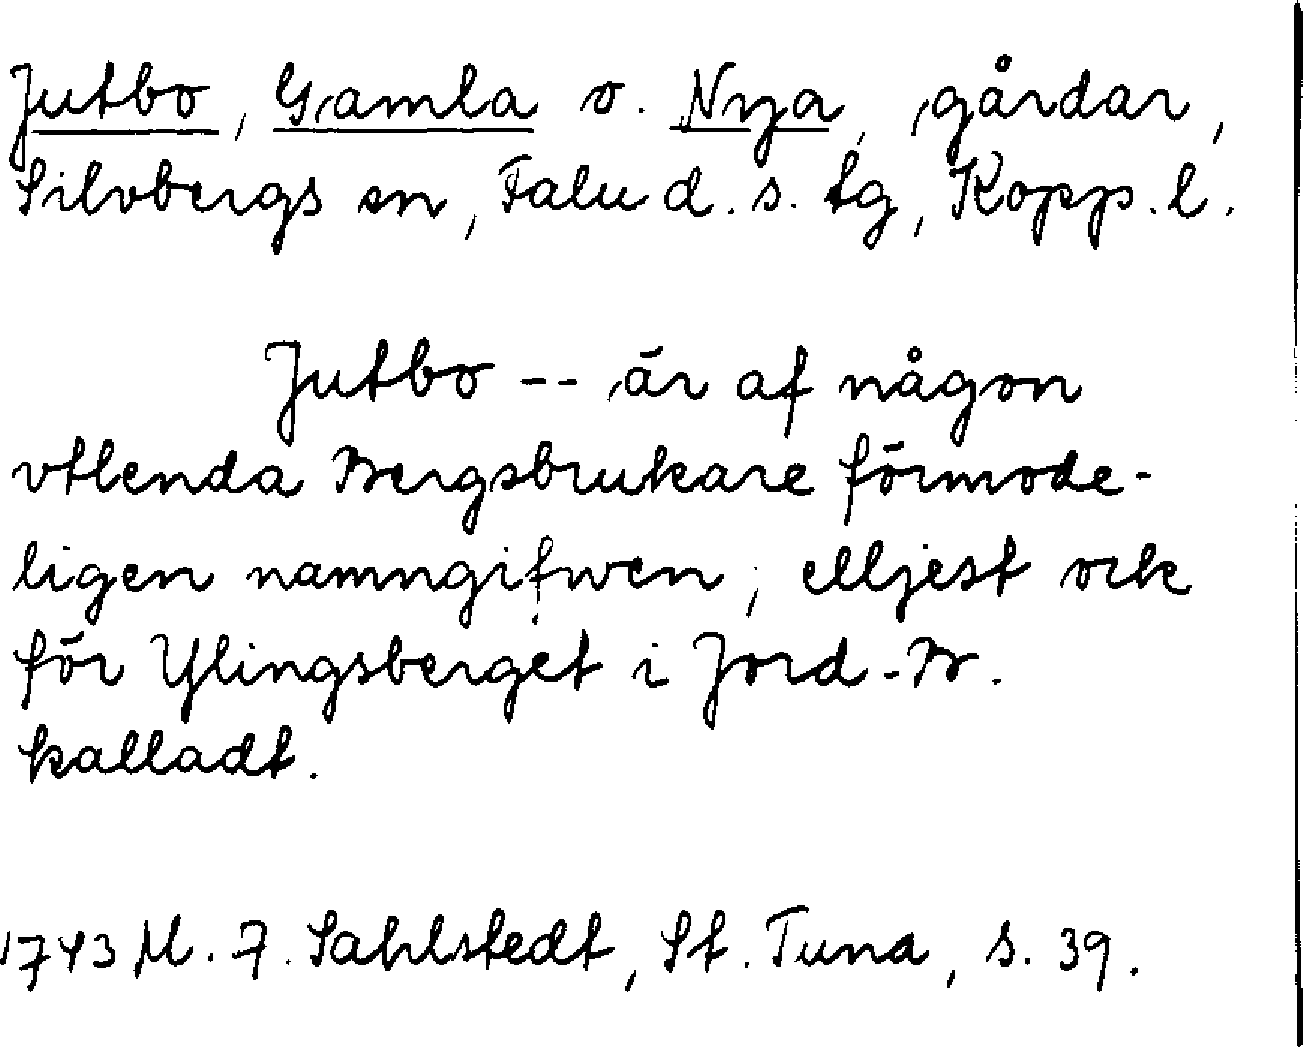 Jutbo, Gamla o. Nya, gårdar,
Silvbergs sn, Falu d. s. tg, Kopp. l.
Jutbo -- är af någon
vtlenda Bergsbrukare förmode-
ligen namngifwen; elljest ock
för Ylingsberget i Jord-B.
kalladt.
1743 M. F. Sahlstedt, St. Tuna, s. 39.